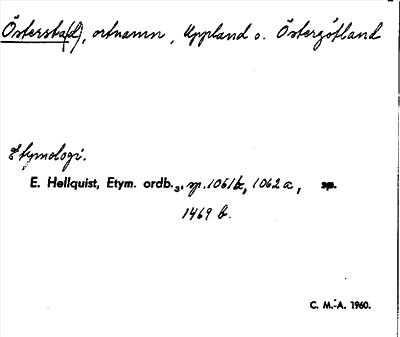 Östersta(d), ortnamn, Uppland o. Östergötland
Etymologi.
E. Hellquist, Etym. ordb.3, sp. 1061 b, 1062 a, sp.
1469 b.
C. M.-A. 1960.